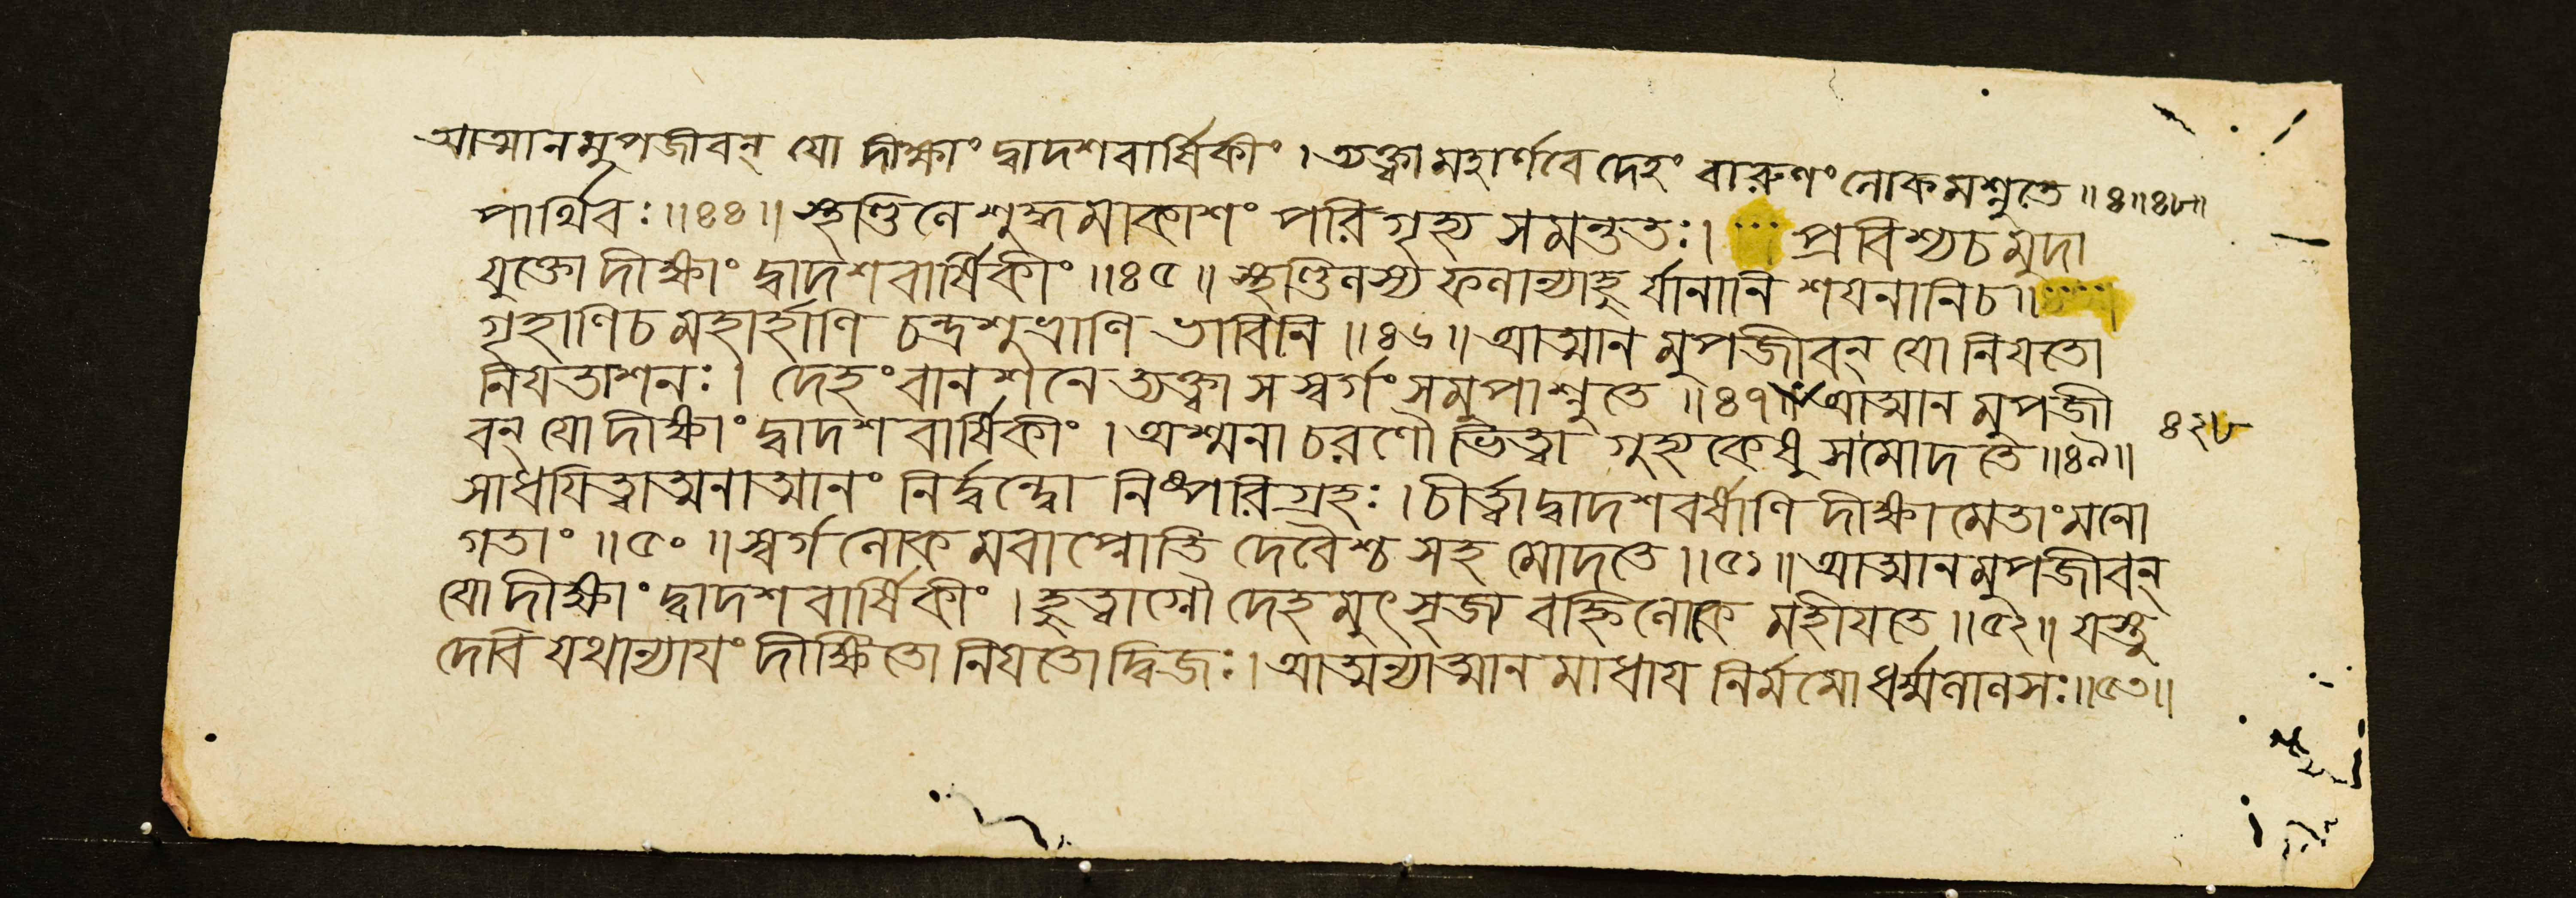 আত্মানমুপজীবন্ যো দীক্ষাং দ্বাদশবার্ষিকীং । ত্যক্ত্বা মহার্ণবে দেহং বারুণং লোকমশ্নুতে ॥ ৪॥৪৮॥
পার্থিবঃ ॥৪৪॥ স্থণ্ডিলে শুদ্ধমাকাশং পরিগৃহ্য সমন্ততঃ । প্রবিশ্য চ মুদা
যুক্তো দীক্ষাং দ্বাদশবার্ষিকীং ॥৪৫॥ স্থণ্ডিলস্য ফলান্যাহু র্যানানি শয়নানি চ ॥
গৃহাণি চ মহার্হাণি চন্দ্রশুভ্রাণি ভাবিনি ॥৪৬॥ আত্মানমুপজীবন্ যো নিয়তো
নিয়তাশনঃ । দেহং বানশনে ত্যক্ত্বা স স্বর্গং সমুপাশ্নুতে ॥৪৭॥ আত্মানমুপজী
বন্ যো দীক্ষাং দ্বাদশবার্ষিকীং । অশ্মনা চরণৌ ভিত্ত্বা গুহ্যকেষু স মোদতে ॥৪৯॥ ৪২৮
সাধয়িত্বাত্মনাত্মানং নির্দ্বন্দ্বো নিষ্পরিগ্রহঃ । চীর্ত্বা দ্বাদশবর্ষাণি দীক্ষামেতাং মনো
গতাং ॥৫০॥ স্বর্গলোকমবাপ্নোতি দেবৈশ্চ সহ মোদতে ॥৫১॥ আত্মানমুপজীবন্
যো দীক্ষাং দ্বাদশবার্ষিকীং । হুত্বাগ্নৌ দেহমুৎসৃজ্য বহ্নিলোকে মহীয়তে ॥৫২॥ যস্তু
দেবি যথান্যায়ং দীক্ষিতো নিয়তো দ্বিজঃ । আত্মন্যাত্মানমাধায় নির্মমো ধর্ম্মলালসঃ ॥৫৩॥